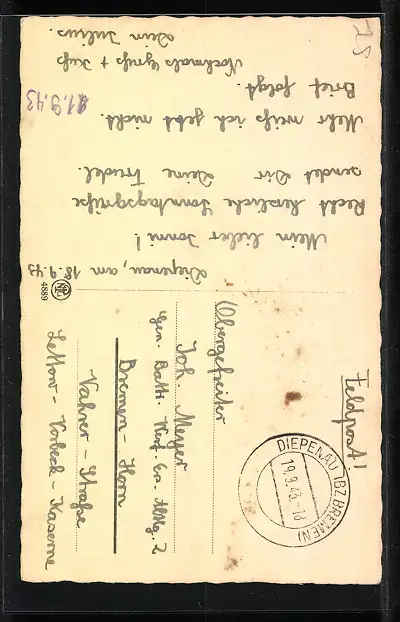 Diepenau, am 18.9.43
Mein lieber Jonni!
Recht herzliche Sonntagsgrüße
sendet Dir Deine Trudel.
Mehr weiß ich jetzt nicht.
Brief folgt.
Nochmals Gruß + Kuß
Dein Julius.
21.9.43
4889
Feldpost!
DIEPENAU (BZ. BREMEN)
19.9.43.-18
Obergefreiter
Joh. Meyer
Gen. Battr. Kraf. Ers. Abtlg. 2
Bremen - Horn
Vahrer - Straße
Lettow - Vorbeck - Kaserne